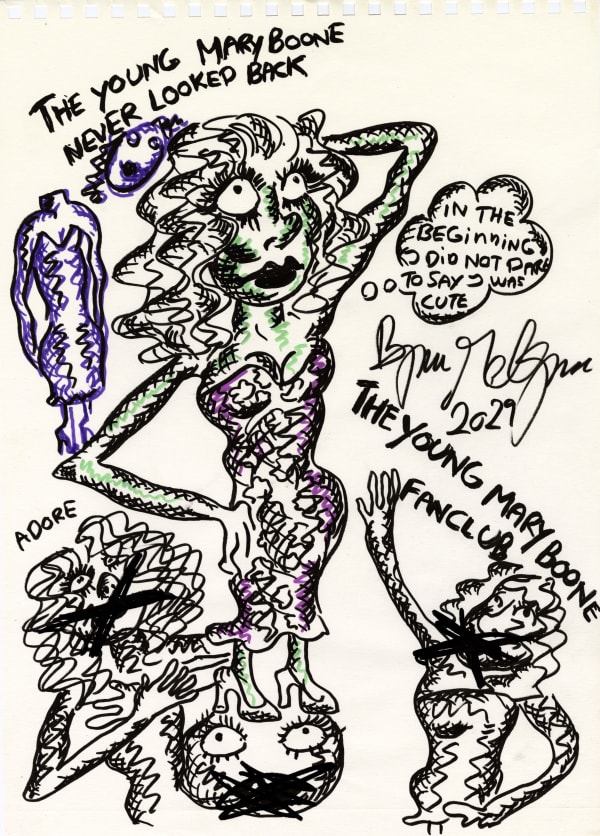 THE YOUNG MARY BOONE
NEVER LOOKED BACK
IN THE
BEGINNING
I DID NOT DARE
TO SAY I WAS
CUTE
2029
THE YOUNG MARY BOONE
FANCLUB
ADORE